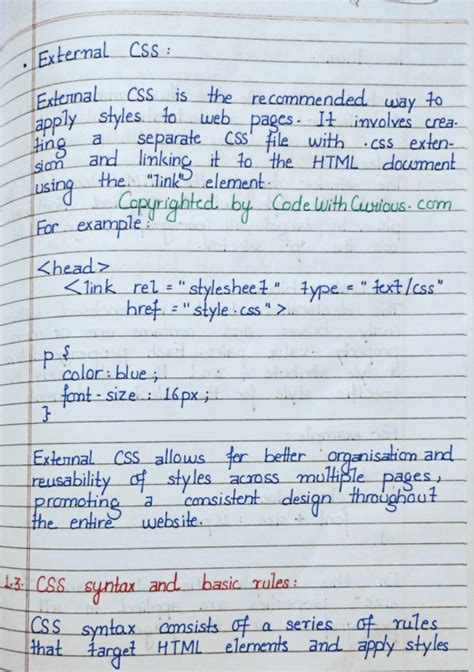 • External CSS :
External CSS is the recommended way to
apply styles to web pages. It involves crea-
ting a separate CSS file with .css exten-
sion and linking it to the HTML document
using the "link" element.
Copyrighted by CodeWithCurious.com
For example :
<head>
<link rel = "stylesheet" type = "text/css"
href = "style.css">
p {
color : blue ;
font-size : 16px ;
}
External CSS allows for better organisation and
reusability of styles across multiple pages,
promoting a consistent design throughout
the entire website.
1.3. CSS syntax and basic rules :
CSS syntax consists of a series of rules
that target HTML elements and apply styles